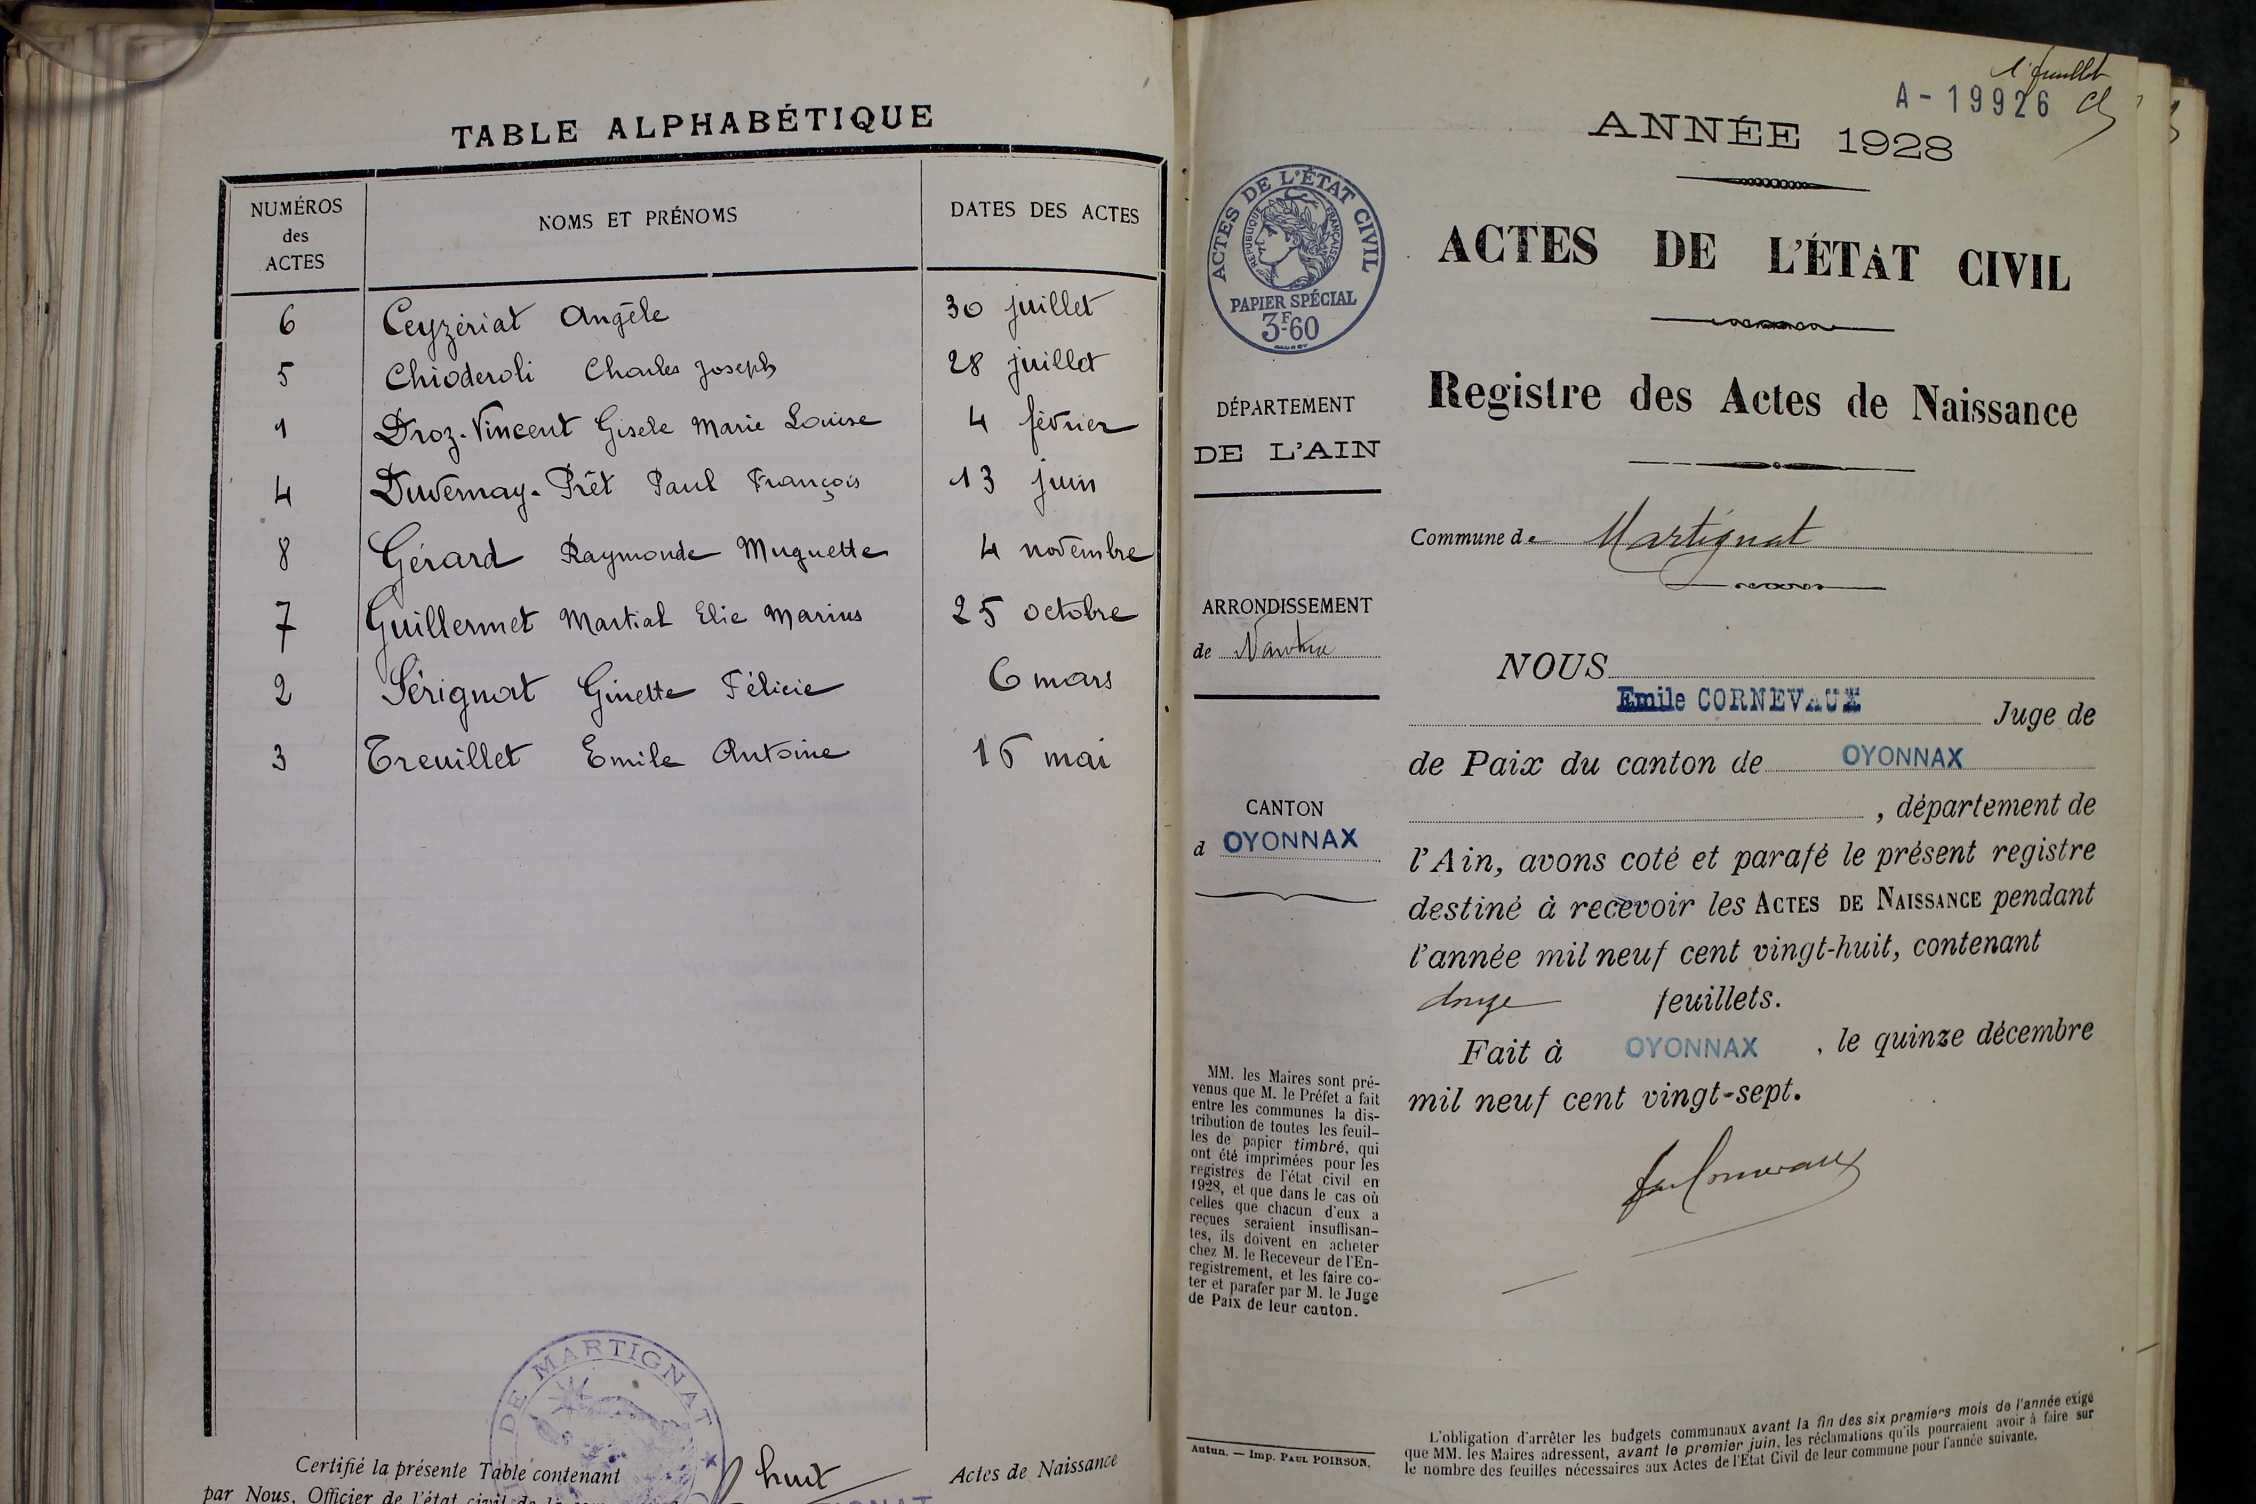 TABLE ALPHABÉTIQUE
NUMÉROS des ACTES
NOMS ET PRÉNOMS
DATES DES ACTES
6 Ceyzériat Angèle 30 juillet
5 Chioderoli Charles Joseph 28 juillet
1 Droz-Vincent Gisèle Marie Louise 4 février
4 Duvernay-Prêt Paul François 13 juin
8 Gérard Raymonde Muguette 4 novembre
7 Guillermet Martial Elie Marius 25 octobre
2 Sérignat Ginette Félicie 6 mars
3 Treuillet Emile Antoine 16 mai
DE MARTIGNAT
Certifié la présente Table contenant huit Actes de Naissance
par Nous, Officier de l'état civil de la
1er feuillet
A-19926
ANNÉE 1928
ACTES DE L'ÉTAT CIVIL
RÉPUBLIQUE FRANÇAISE
PAPIER SPÉCIAL
3F-60
ACTES DE L'ÉTAT CIVIL
DÉPARTEMENT
DE L'AIN
Registre des Actes de Naissance
Commune de Martignat
ARRONDISSEMENT
de Nantua
CANTON
d OYONNAX
NOUS
Emile CORNEVAUX Juge de
de Paix du canton de OYONNAX
, département de
l'Ain, avons coté et parafé le présent registre
destiné à recevoir les ACTES DE NAISSANCE pendant
l'année mil neuf cent vingt-huit, contenant
douze feuillets.
Fait à OYONNAX, le quinze décembre
mil neuf cent vingt-sept.
MM. les Maires sont pré-
venus que M. le Préfet a fait
entre les communes la dis-
tribution de toutes les feuil-
les de papier timbré, qui
ont été imprimées pour les
registres de l'état civil en
1928, et que dans le cas où
celles que chacun d'eux a
reçues seraient insuffisan-
tes, ils doivent en acheter
chez M. le Receveur de l'En-
registrement, et les faire co-
ter et parafer par M. le Juge
de Paix de leur canton.
Autun. — Imp. PAUL POIRSON.
L'obligation d'arrêter les budgets communaux avant la fin des six premiers mois de l'année exige
que MM. les Maires adressent, avant le premier juin, les réclamations qu'ils pourraient avoir à faire sur
le nombre des feuilles nécessaires aux Actes de l'État Civil de leur commune pour l'année suivante.